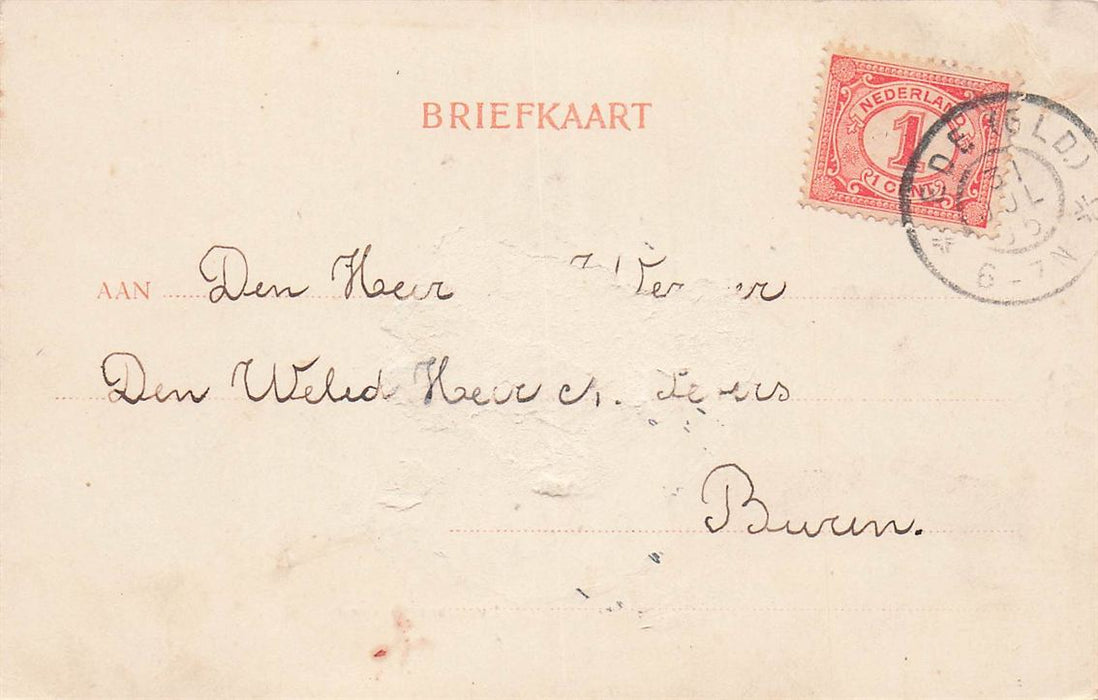 BRIEFKAART
NEDERLAND
1
1 CENT
EDE (GLD.)
JUL
6-7N
AAN Den Heer
Den Weled Heer
Buren.